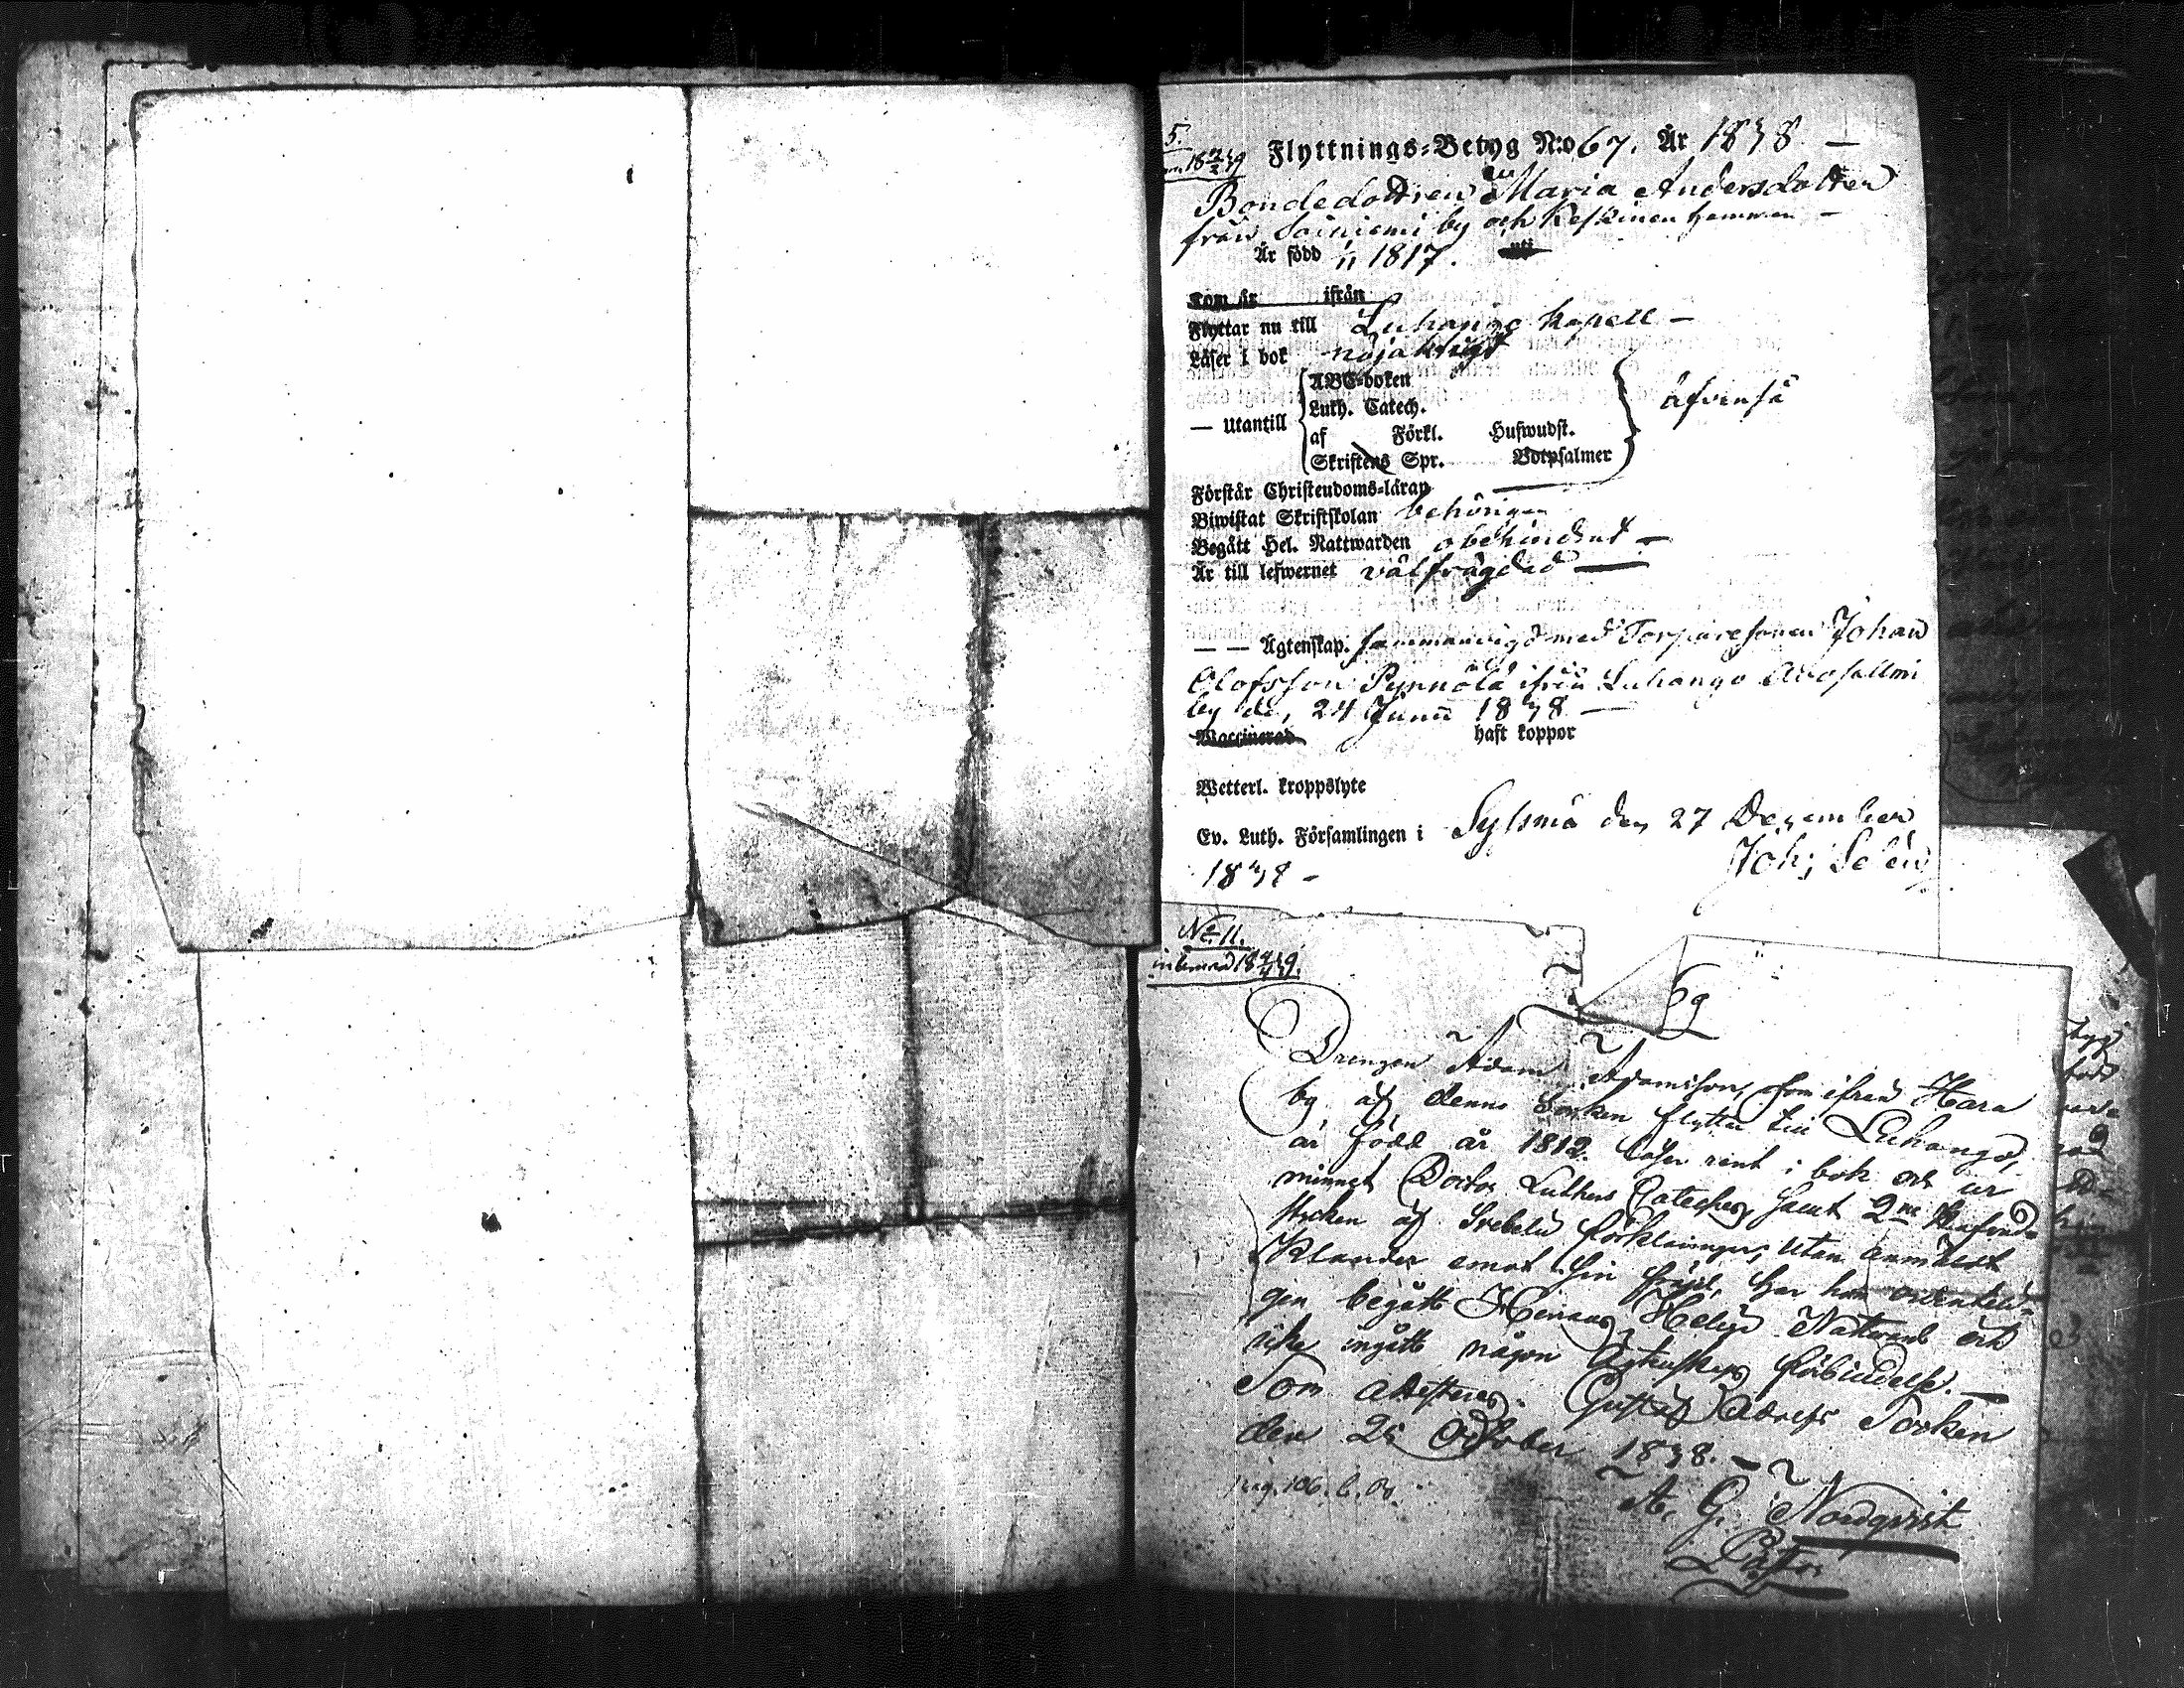 5.
Flyttnings-Betyg N:o 67. År 1838 —
Bondedottren Maria Andersdotter
från Soiniemi by och Keskinen hemman —
Är född 1/11 1817. uti
Kom år ifrån
Flyttar nu till Luhango kapell —
Läser i bok nöjaktigt
— Utantill
ABC-boken
Luth. Catech.
af Förkl. Hufwudst.
Skriftens Spr. Botpsalmer
äfvenså
Förstår Christendoms-läran
Biwistat Skriftskolan behörigen
Begått Hel. Nattwarden obehindrat —
Är till lefwernet välfrägdad —
— — Ägtenskap. sammanvigd med Torparesonen Johan
Olofsson Pynnölä ifrån Luhango
by den 24 Junii 1838 —
Waccinerad haft koppor
Wetterl. kroppslyte
Ev. Luth. Församlingen i Sysmä den 27 December
1838 —
Joh; Selén
No 11.
69
Drengen Adam Adamsson, som ifrån Hara
by af denne Socken flyttar till Luhango,
är född år 1812. läser rent i bok och ur
minnet Doctor Luthers Cateches samt 2ne Hufvud-
stycken af Svebelii förklaringar; Utan anmäldt
Klander emot sin frejd, har han ordenteli-
gen begått Herrans Heliga Nattvard och
icke ingått någon Ägtenskaps förbindelse. —
Som attesteras. Gustaf Adolfs Socken
den 25 October 1838. —
A. G. Nordqvist
Pastor
pag. 106.